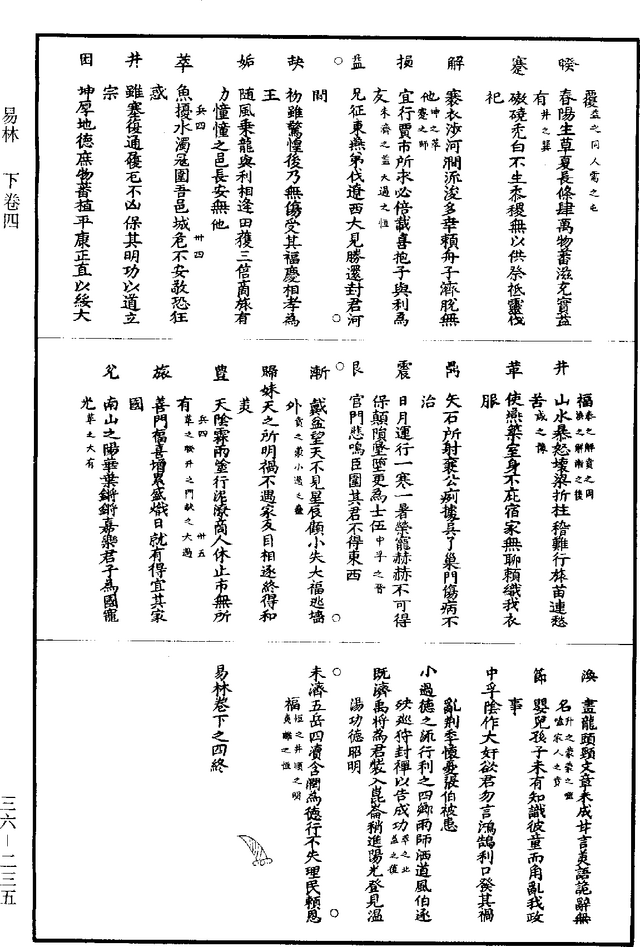 易林　下卷四
覆益之同人需之屯
睽　春陽生草夏長條肆萬物蕃滋充實益
有井之巽
蹇　磝磽禿白不生黍稷無以供祭祗靈伐
祀
解　褰衣涉河澗流浚多幸賴舟子濟脫無
他坤之萃蹇之師
損　宜行賈市所求必倍載喜抱子與利為
友未濟之益大過之恒
益　兄征東燕弟伐遼西大見勝還封君河
間
夬　初雖驚惶後乃無傷受其福慶相孝為
王
姤　隨風乘龍與利相逢田獲三倍商旅有
功憧憧之邑長安無他
兵四　卅四
萃　魚擾水濁寇圍吾邑城危不安敬恐狂
惑
井　雖塞復通履危不凶保其明功以道立
宗
困　坤厚地德庶物蕃植平康正直以綏大
福泰之解賁之同渙之解漸之復
井　山水暴怒壞梁折柱稽難行旅苗連愁
苦咸之豫
革　使燕築室身不庇宿家無聊賴織我衣
服
鼎　矢石所射襄公痾據吳子巢門傷病不
治
震　日月運行一寒一暑榮寵赫赫不可得
保顛隕墜墮更為士伍中孚之晉
艮　官門悲鳴臣圍其君不得東西
漸　戴盆望天不見星辰顧小失大福逃墻
外賁之蒙小過之蠱
歸妹天之所明禍不遇家友目相逐終得和
美
豐　天陰霖雨塗行泥潦商人休止市無所
有革之睽升之鬥缺之大過
兵四　卅五
旅　喜門福喜增累盛熾日就有得宜其家
國
兌　南山之陽華葉鏘鏘嘉樂君子為國寵
光革之大有
渙　畫龍頭頸文章未成甘言美語詭辭無
名升之蒙蒙之噬嗑家人之賁
節　嬰兒孩子未有知識彼童而角亂我政
事
中孚陰作大奸欲君勿言鴻鵠利口發其禍
亂荆季懷憂張伯被患
小過德之流行利之四鄉雨師洒道風伯逐
殃巡狩封禪以告成功萃之比益之復
既濟禹將為君裝入崑崙稍進陽光登見溫
湯功德昭明
未濟五岳四瀆含潤為德行不失理民賴恩
福恒之井頤之明夷離之恒
易林卷下之四終
三六－二三五